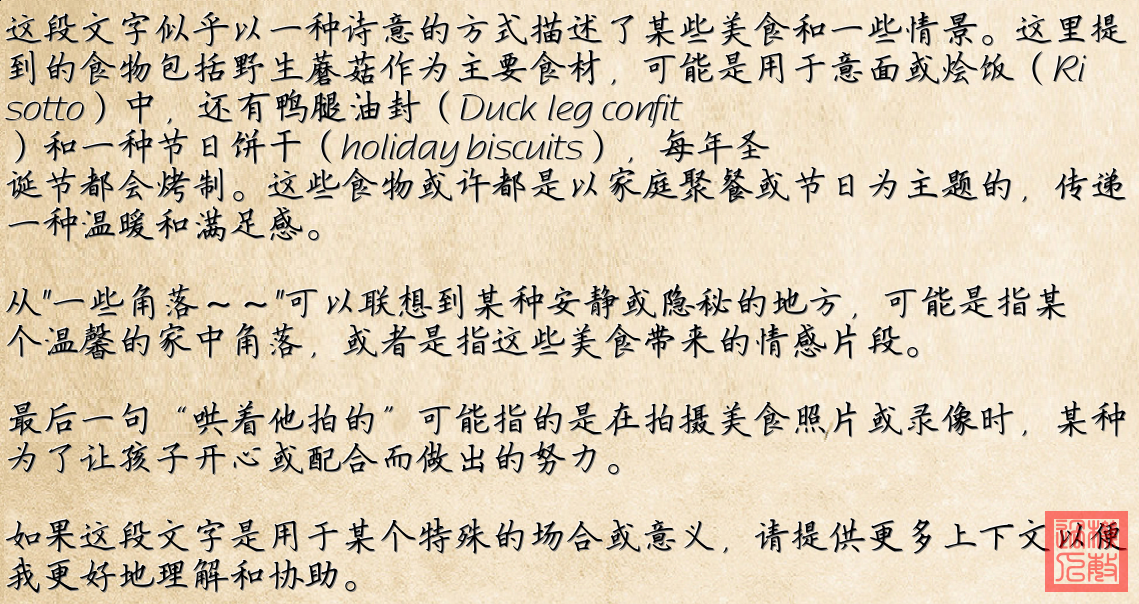 这段文字似乎以一种诗意的方式描述了某些美食和一些情景。这里提
到的食物包括野生蘑菇作为主要食材，可能是用于意面或烩饭（Ri
sotto）中，还有鸭腿油封（Duck leg confit
）和一种节日饼干（holiday biscuits），每年圣
诞节都会烤制。这些食物或许都是以家庭聚餐或节日为主题的，传递
一种温暖和满足感。
从"一些角落～～"可以联想到某种安静或隐秘的地方，可能是指某
个温馨的家中角落，或者是指这些美食带来的情感片段。
最后一句“哄着他拍的”可能指的是在拍摄美食照片或录像时，某种
为了让孩子开心或配合而做出的努力。
如果这段文字是用于某个特殊的场合或意义，请提供更多上下文以便
我更好地理解和协助。